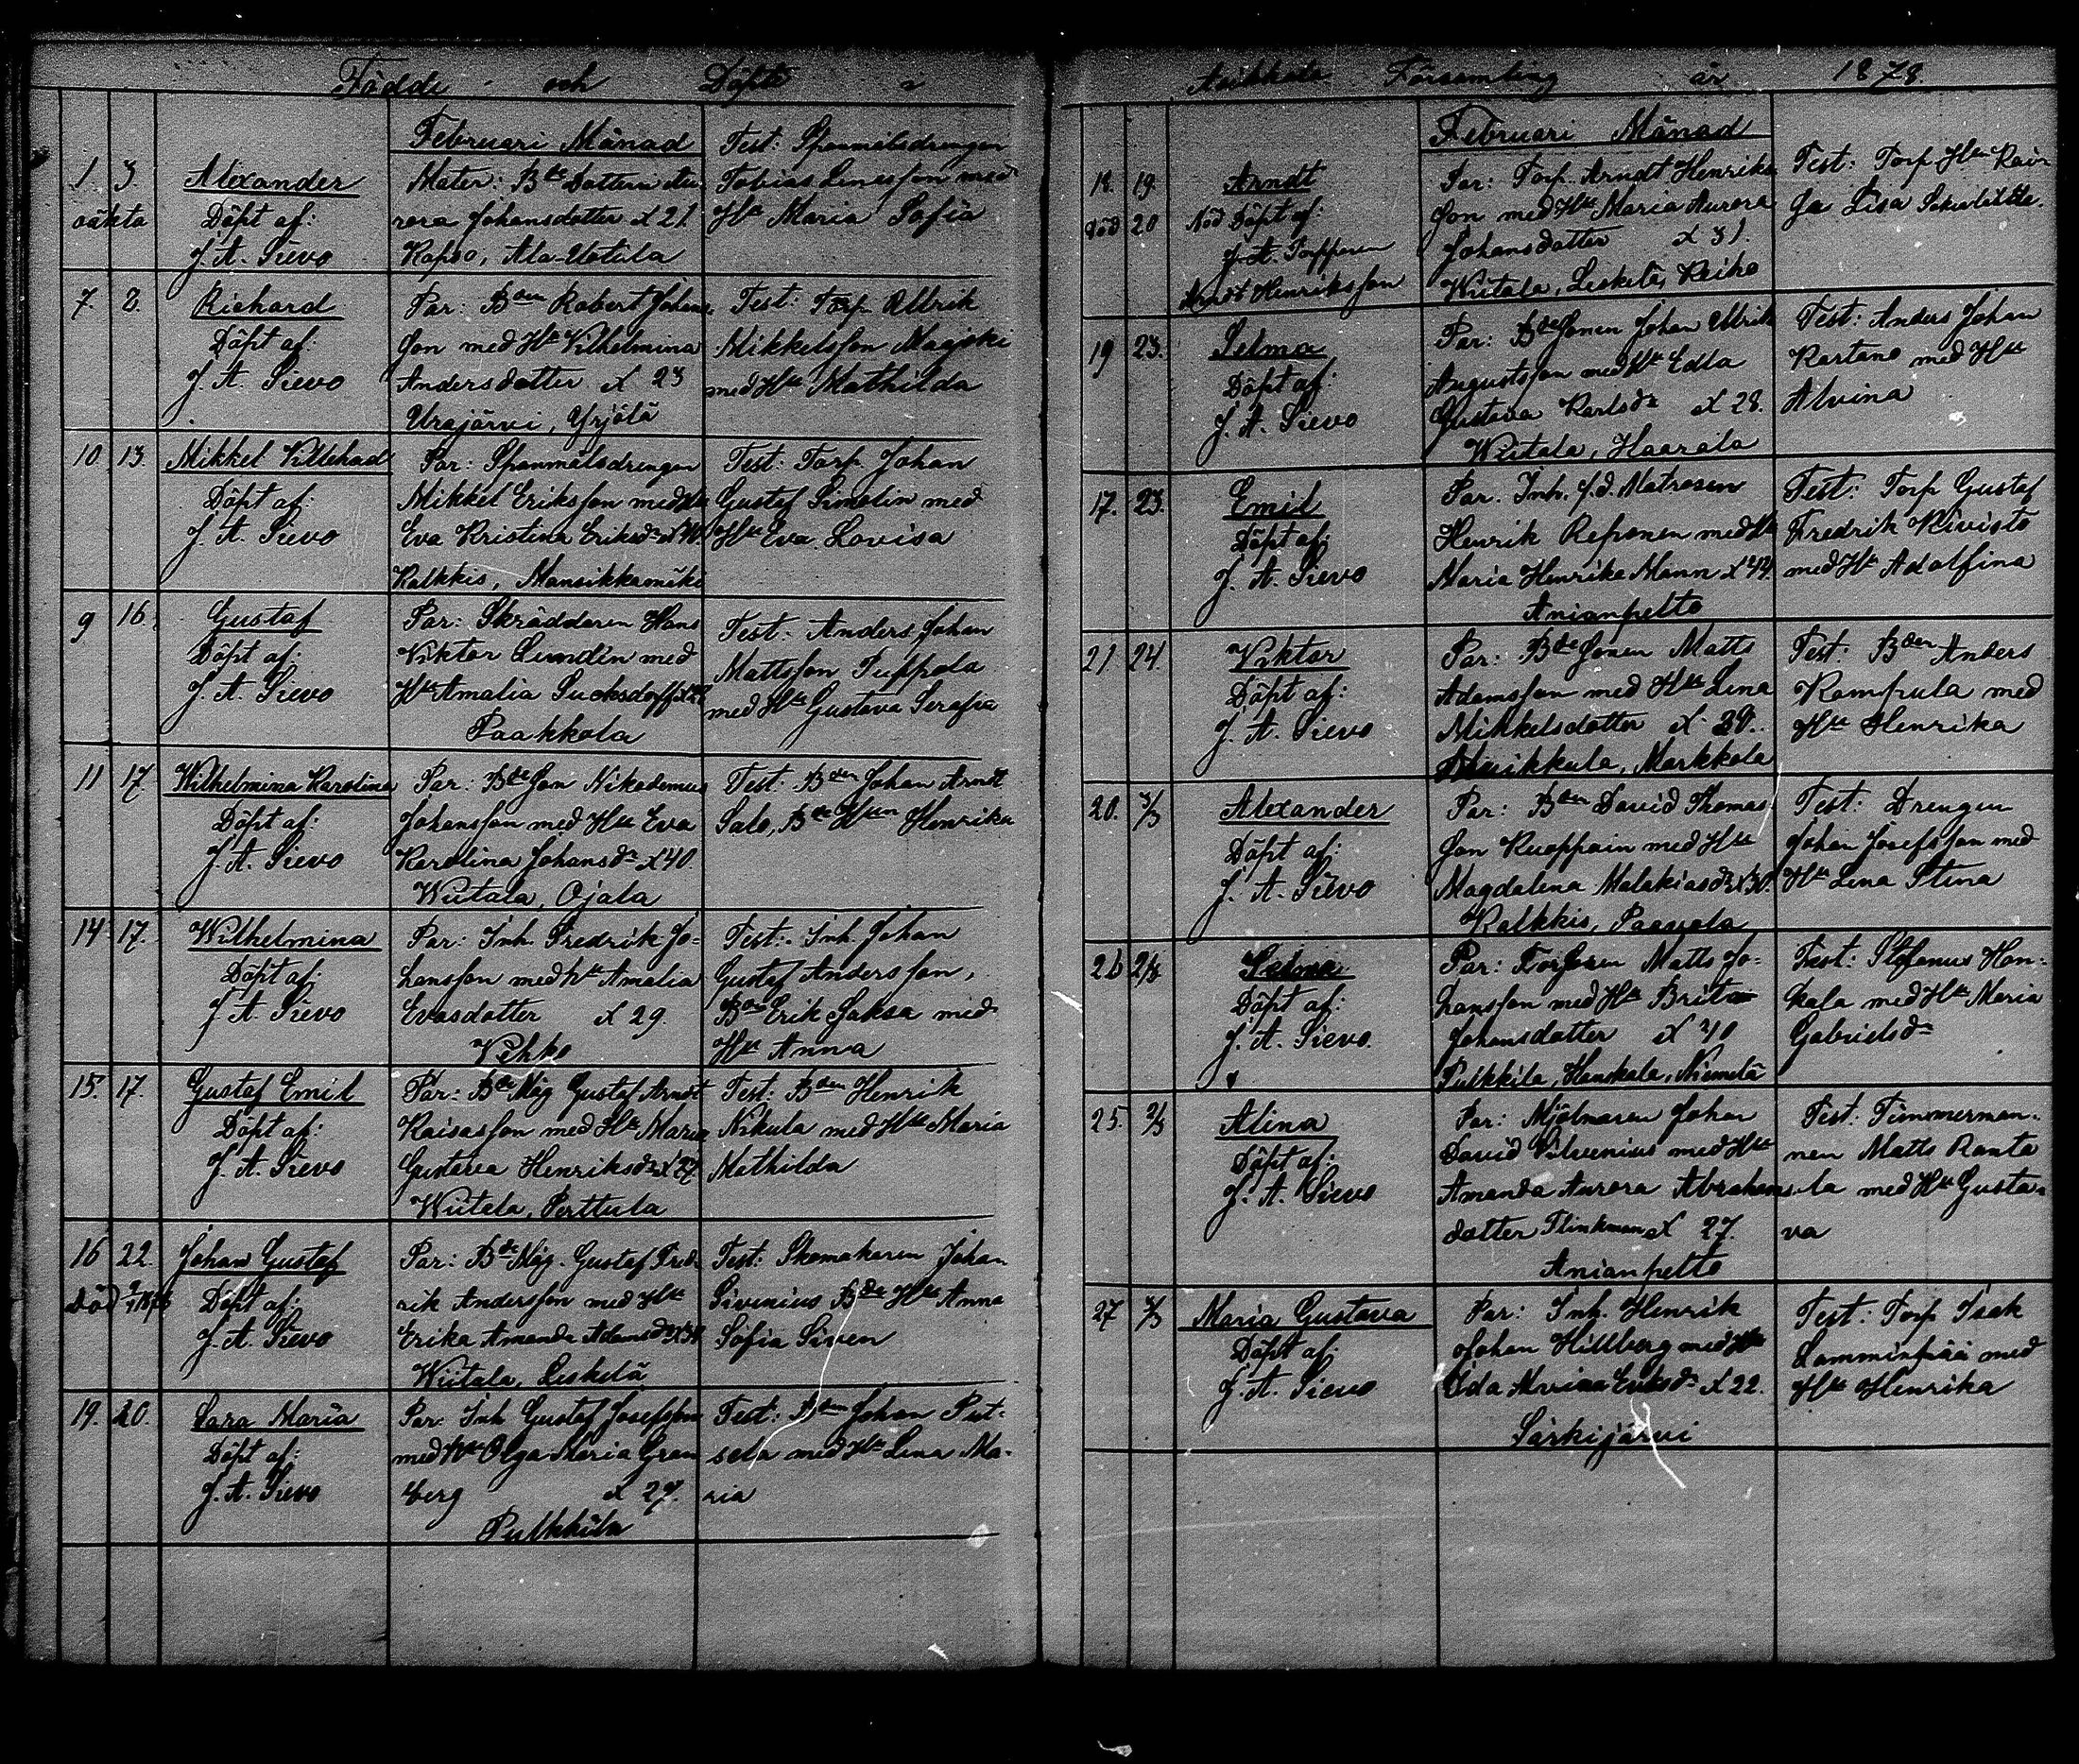 Födde och Döpte i
Februari Månad
1. 3. Alexander
oäkta Döpt af:
J. A. Sievo
Mater: Bde Dottern Au-
rora Johansdotter x 21.
Kopso, Ala-Uotula
Test: Spanmålsdrengen
Tobias Linesson med
Hu Maria Sofia
7. 8. Richard
Döpt af:
J. A. Sievo
Par: Bden Robert Johans-
son med Hu Vilhelmina
Andersdotter x 23
Urajärvi, Yrjölä
Test: Torp. Ullrik
Mikkelsson
med Hu Mathilda
10. 13. Mikkel Villehad
Döpt af:
J. A. Sievo
Par: Spanmålsdrengen
Mikkel Eriksson med Hu
Eva Kristina Eriksdr x 40.
Kalkkis, Mansikkamäki
Test: Torp Johan
Gustaf Simolin med
Hu Eva Lovisa
9 16. Gustaf
Döpt af:
J. A. Sievo
Par: Skräddaren Hans
Viktor Lundin med
Hu Amalia Suchsdorff
Paakkola
Test: Anders Johan
Mattsson Puppola
med Hu Gustava Serafia
11 17. Wilhelmina Karolina
Döpt af:
J. A. Sievo
Par: Bde Son Nikodemus
Johansson med Hu Eva
Karolina Johansdr x 40.
Wiitala, Ojala
Test: Bden Johan Arndt
Salo, Bde Hun Henrika
14 17. Wilhelmina
Döpt af:
J. A. Sievo
Par: Inh. Fredrik Jo-
hansson med hu Amalia
Evasdotter x 29.
Vehko
Test: Inh. Johan
Gustaf Andersson,
Bden Erik Saksa med
Hu Anna
15. 17. Gustaf Emil
Döpt af:
J. A. Sievo
Par: Bde Måg Gustaf Arndt
Kaisasson med Hu Maria
Gustava Henriksdr x 27
Wiitala, Perttula
Test: Bden Henrik
Nikula med Hu Maria
Mathilda
16 22. Johan Gustaf
Död Döpt af:
J. A. Sievo
Par: Bde Måg. Gustaf Fred-
rik Andersson med Hu
Erika Amanda Adamsdr
Wiitala, Leskelä
Test: Skomakaren Johan
Sivenius Bde Hu Anna
Sofia Siven
19. 20. Sara Maria
Döpt af:
J. A. Sievo
Par. Inh Gustaf Josefsson
med Hu Olga Maria Gran
berg x 27.
Pulkkila
Test: Bden Johan Put-
sela med Hu Lena Ma-
ria
Asikkala Församling år 1878.
Februari Månad
18. 19. Arndt
död 20 Nöd Döpt af:
J. A. Torpparen
Arndt Henriksson
Par: Torp. Arndt Henriks
son med Hu Maria Aurora
Johansdotter x 31.
Wiitala, Leskelä, Reiko
Test: Torp Hun
Lisa
19 23. Selma
Döpt af:
J. A. Sievo
Par: Bde Sonen Johan Ullrik
Augustsson med Hu Edla
Gustava Karlsdr x 28.
Wiitala, Haarala
Test: Anders Johan
Kartano med Hu
Alvina
17. 23. Emil
Döpt af:
J. A. Sievo
Par. Inh. f.d. Matrosen
Henrik Reponen med Hu
Maria Henrika Mann x 44
Anianpelto
Test: Torp Gustaf
Fredrik Kivisto
med Hu Adolfina
21 24. Viktor
Döpt af:
J. A. Sievo
Par: Bde Sonen Matts
Adamsson med Hu Lena
Mikkelsdotter x 29.
Muikkula, Markkola
Test: Bden Anders
Kampula med
Hu Henrika
20. 3/3 Alexander
Döpt af:
J. A. Sievo
Par: Bden David Thomas
son Kuoppain med Hu
Magdalena Malakiasdr x 30.
Kalkkis, Paavola
Test: Drengen
Johan Josefsson med
Hu Lena Stina
26 2/3 Selma
Döpt af:
J. A. Sievo.
Par: Torparen Matts Jo-
hansson med Hu Brita
Johansdotter x 40
Pulkkila, Hankala, Niemelä
Test: Stefanus Han-
kala med Hu Maria
Gabrielsdr
25. 2/3 Alina
Döpt af:
J. A. Sievo
Par: Mjölnaren Johan
David Vilvenius med Hu
Amanda Aurora Abrahams-
dotter Flinkman x 27.
Anianpelto
Test: Timmerman-
nen Matts Ranta
la med Hu Gusta-
va
27 3/3 Maria Gustava
Döpt af:
J. A. Sievo
Par: Inh. Henrik
Johan Hillberg med Hu
Ida Alvina Eriksdr x 22.
Särkijärvi
Test: Torp Isak
Lamminpää med
Hu Henrika